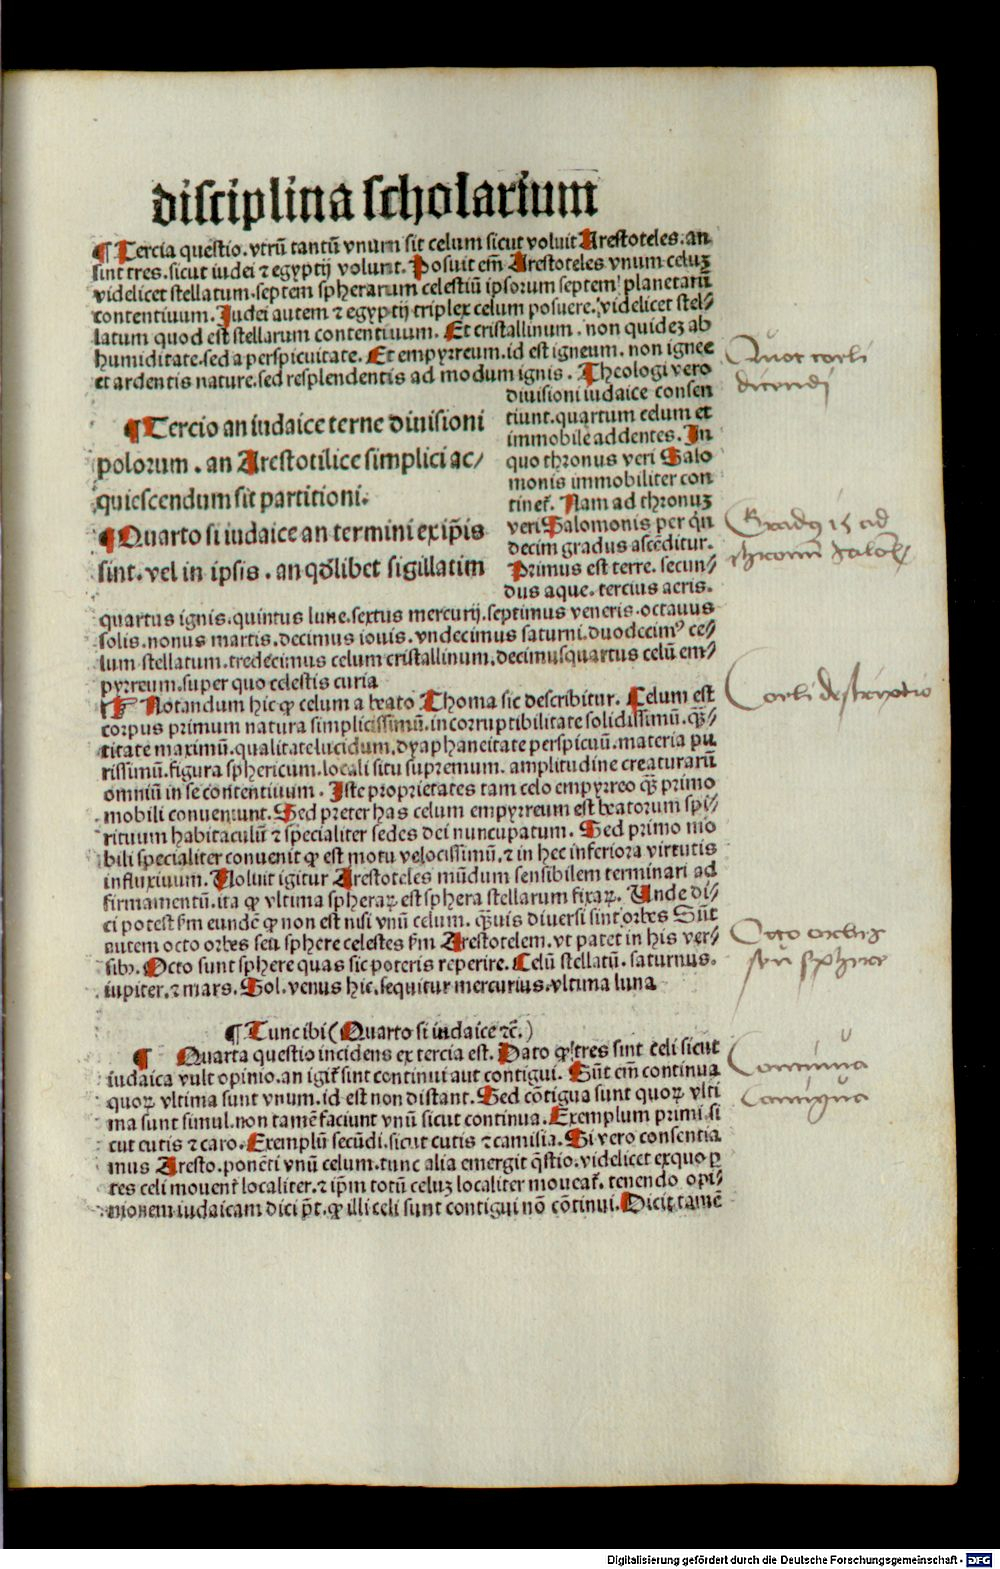 disciplina scholarium
¶ Tercia questio. vtrū tantū vnum sit celum sicut voluit Arestoteles. an
sint tres. sicut iudei ⁊ egyptij volunt. Posuit em̄ Arestoteles vnum celuꝫ
videlicet stellatum. septem spherarum celestiū ipsorum septem planetarū
contentiuum. Judei autem ⁊ egyptij triplex celum posuere. videlicet stel⸗
latum quod est stellarum contentiuum. Et cristallinum. non quideꝫ ab
humiditate. sed a perspicuitate. Et empyrreum. id est igneum. non ignee
et ardentis nature. sed resplendentis ad modum ignis. Theologi vero
diuisioni iudaice consen
tiunt. quartum celum et
immobile addentes. In
quo thronus veri Salo
monis immobiliter con
tinet̄. Nam ad thronuꝫ
veri Salomonis per qn̄
decim gradus ascēditur.
Primus est terre. secun⸗
dus aque. tercius aeris.
¶ Tercio an iudaice terne diuisioni
polorum. an Arestotilice simplici ac⸗
quiescendum sit partitioni.
¶ Quarto si iudaice an termini ex ip̄is
sint. vel in ipsis. an qōlibet sigillatim
quartus ignis. quintus lune. sextus mercurij. septimus veneris. octauus
solis. nonus martis. decimus iouis. vndecimus saturni. duodecimꝰ ce⸗
lum stellatum. tredecimus celum cristallinum. decimusquartus celū em⸗
pyrreum. super quo celestis curia
Notandum hic ꝙ celum a beato Thoma sic describitur. Celum est
corpus primum natura simplicissimū. incorruptibilitate solidissimū. quā⸗
titate maximū. qualitate lucidum. dyaphaneitate perspicuū. materia pu
rissimū. figura sphericum. locali situ supremum. amplitudine creaturarū
omniū in se contentiuum. Iste proprietates tam celo empyrreo q̄ꝫ primo
mobili conueniunt. Sed preter has celum empyrreum est beatorum spi⸗
rituum habitaculū ⁊ specialiter sedes dei nuncupatum. Sed primo mo
bili specialiter conuenit ꝙ est motu velocissimū. ⁊ in hec inferiora virtutis
influxiuum. Voluit igitur Arestoteles mūdum sensibilem terminari ad
firmamentū. ita ꝙ vltima spheraꝝ est sphera stellarum fixaꝝ. Unde di⸗
ci potest ẜm eundē ꝙ non est nisi vnū celum. q̄ꝫuis diuersi sint orbes Sūt
autem octo orbes seu sphere celestes ẜm Arestotelem. vt patet in his ver⸗
sibꝫ. Octo sunt sphere quas sic poteris reperire. Celū stellatū. saturnus.
iupiter. ⁊ mars. Sol. venus hic. sequitur mercurius. vltima luna
¶ Tunc ibi (Quarto si iudaice ⁊c̄.)
¶ Quarta questio incidens ex tercia est. Dato ꝙ tres sint celi sicut
iudaica vult opinio. an igit̄ sint continui aut contigui. Sūt em̄ continua
quoꝝ vltima sunt vnum. id est non distant. Sed cōtigua sunt quoꝝ vlti
ma sunt simul. non tamē faciunt vnū sicut continua. Exemplum primi si
cut cutis ⁊ caro. Exemplū secūdi. sicut cutis ⁊ camisia. Si vero consentia
mus Aresto. ponēti vnū celum. tunc alia emergit q̄stio. videlicet exquo ꝑ
tes celi mouent̄ localiter. ⁊ ip̄m totū celuꝫ localiter moueat̄. tenendo opi⸗
nionem iudaicam dici p̄t. ꝙ illi celi sunt contigui nō cōtinui. Dicit tamē
Quot coeli
dicendi
Gradꝰ 15 ad
thronū
Coeli descriptio
Octo orbes
seu sphere
Continua
Contigua
Digitalisierung gefördert durch die Deutsche Forschungsgemeinschaft - DFG